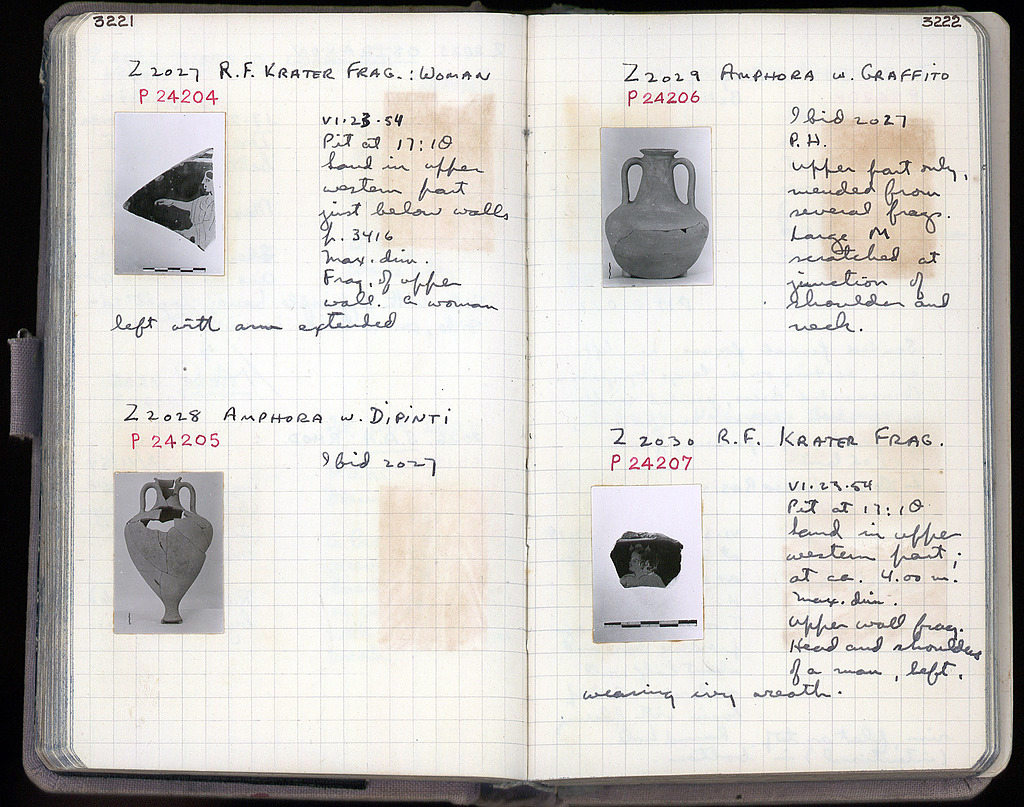 3221
Z 2027 R.F. KRATER FRAG.: WOMAN
P 24204
VI·23·54
Pit at 17:1Θ
Sand in upper
western part
just below walls
p. 3416
Max. dim.
Frag. of upper
wall. A woman
left with arm extended
Z 2028 AMPHORA W. DIPINTI
P 24205
Ibid 2027
3222
Z 2029 AMPHORA W. GRAFFITO
P 24206
Ibid 2027
P.H.
Upper part only,
mended from
several frags.
Large M
scratched at
junction of
shoulder and
neck.
Z 2030 R.F. KRATER FRAG.
P 24207
VI·23·54
Pit at 17:1Θ
Sand in upper
western part;
at ca. 4.00 m.
Max. dim.
Upper wall frag.
Head and shoulders
of a man, left,
wearing ivy wreath.